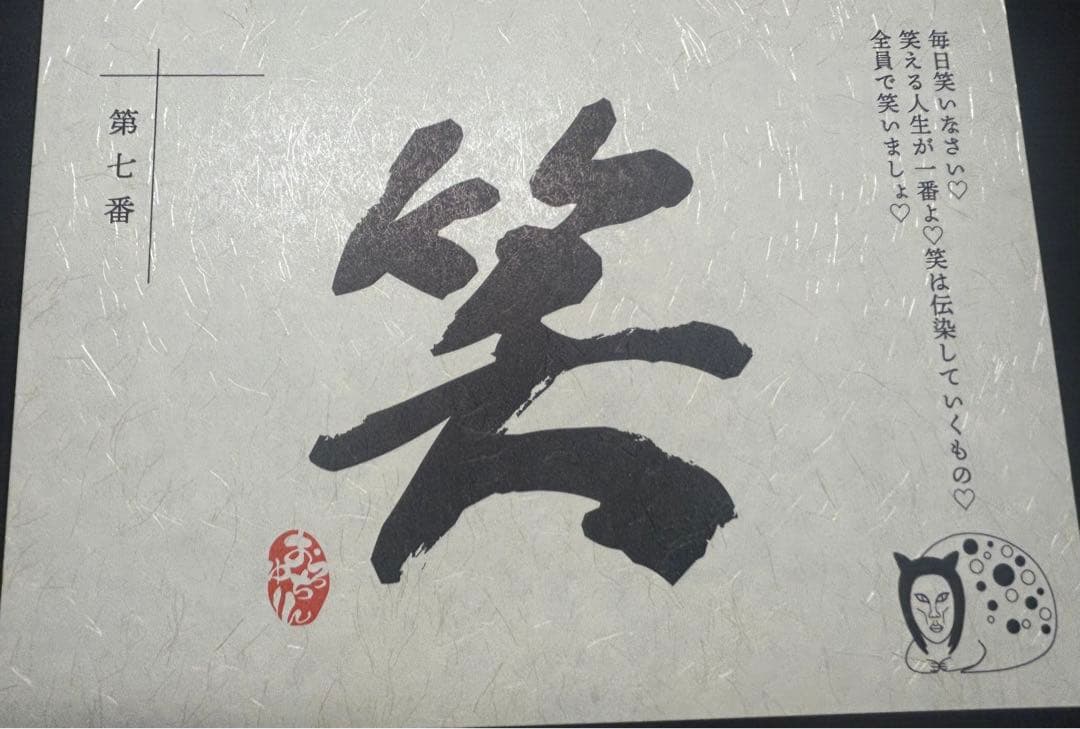 毎日笑いなさい♡
笑える人生が一番よ♡笑は伝染していくもの♡
全員で笑いましょ♡
笑
第七番